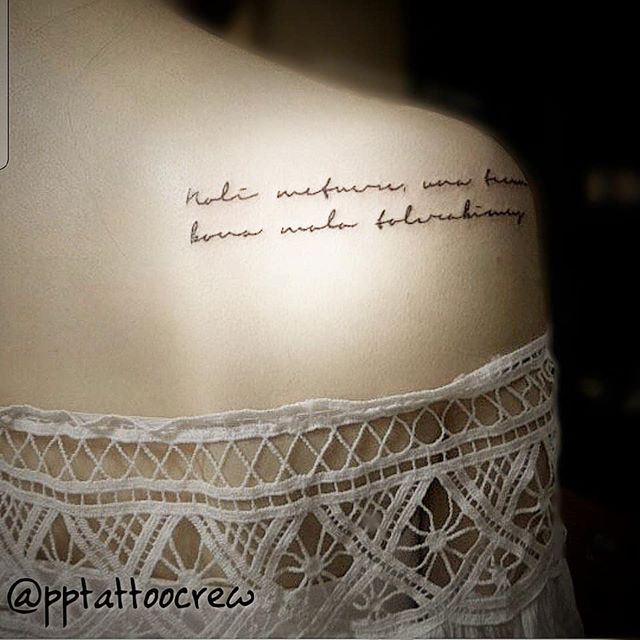 Noli metuere, una tecum
bona mala tolerabimus
@pptattoocrew